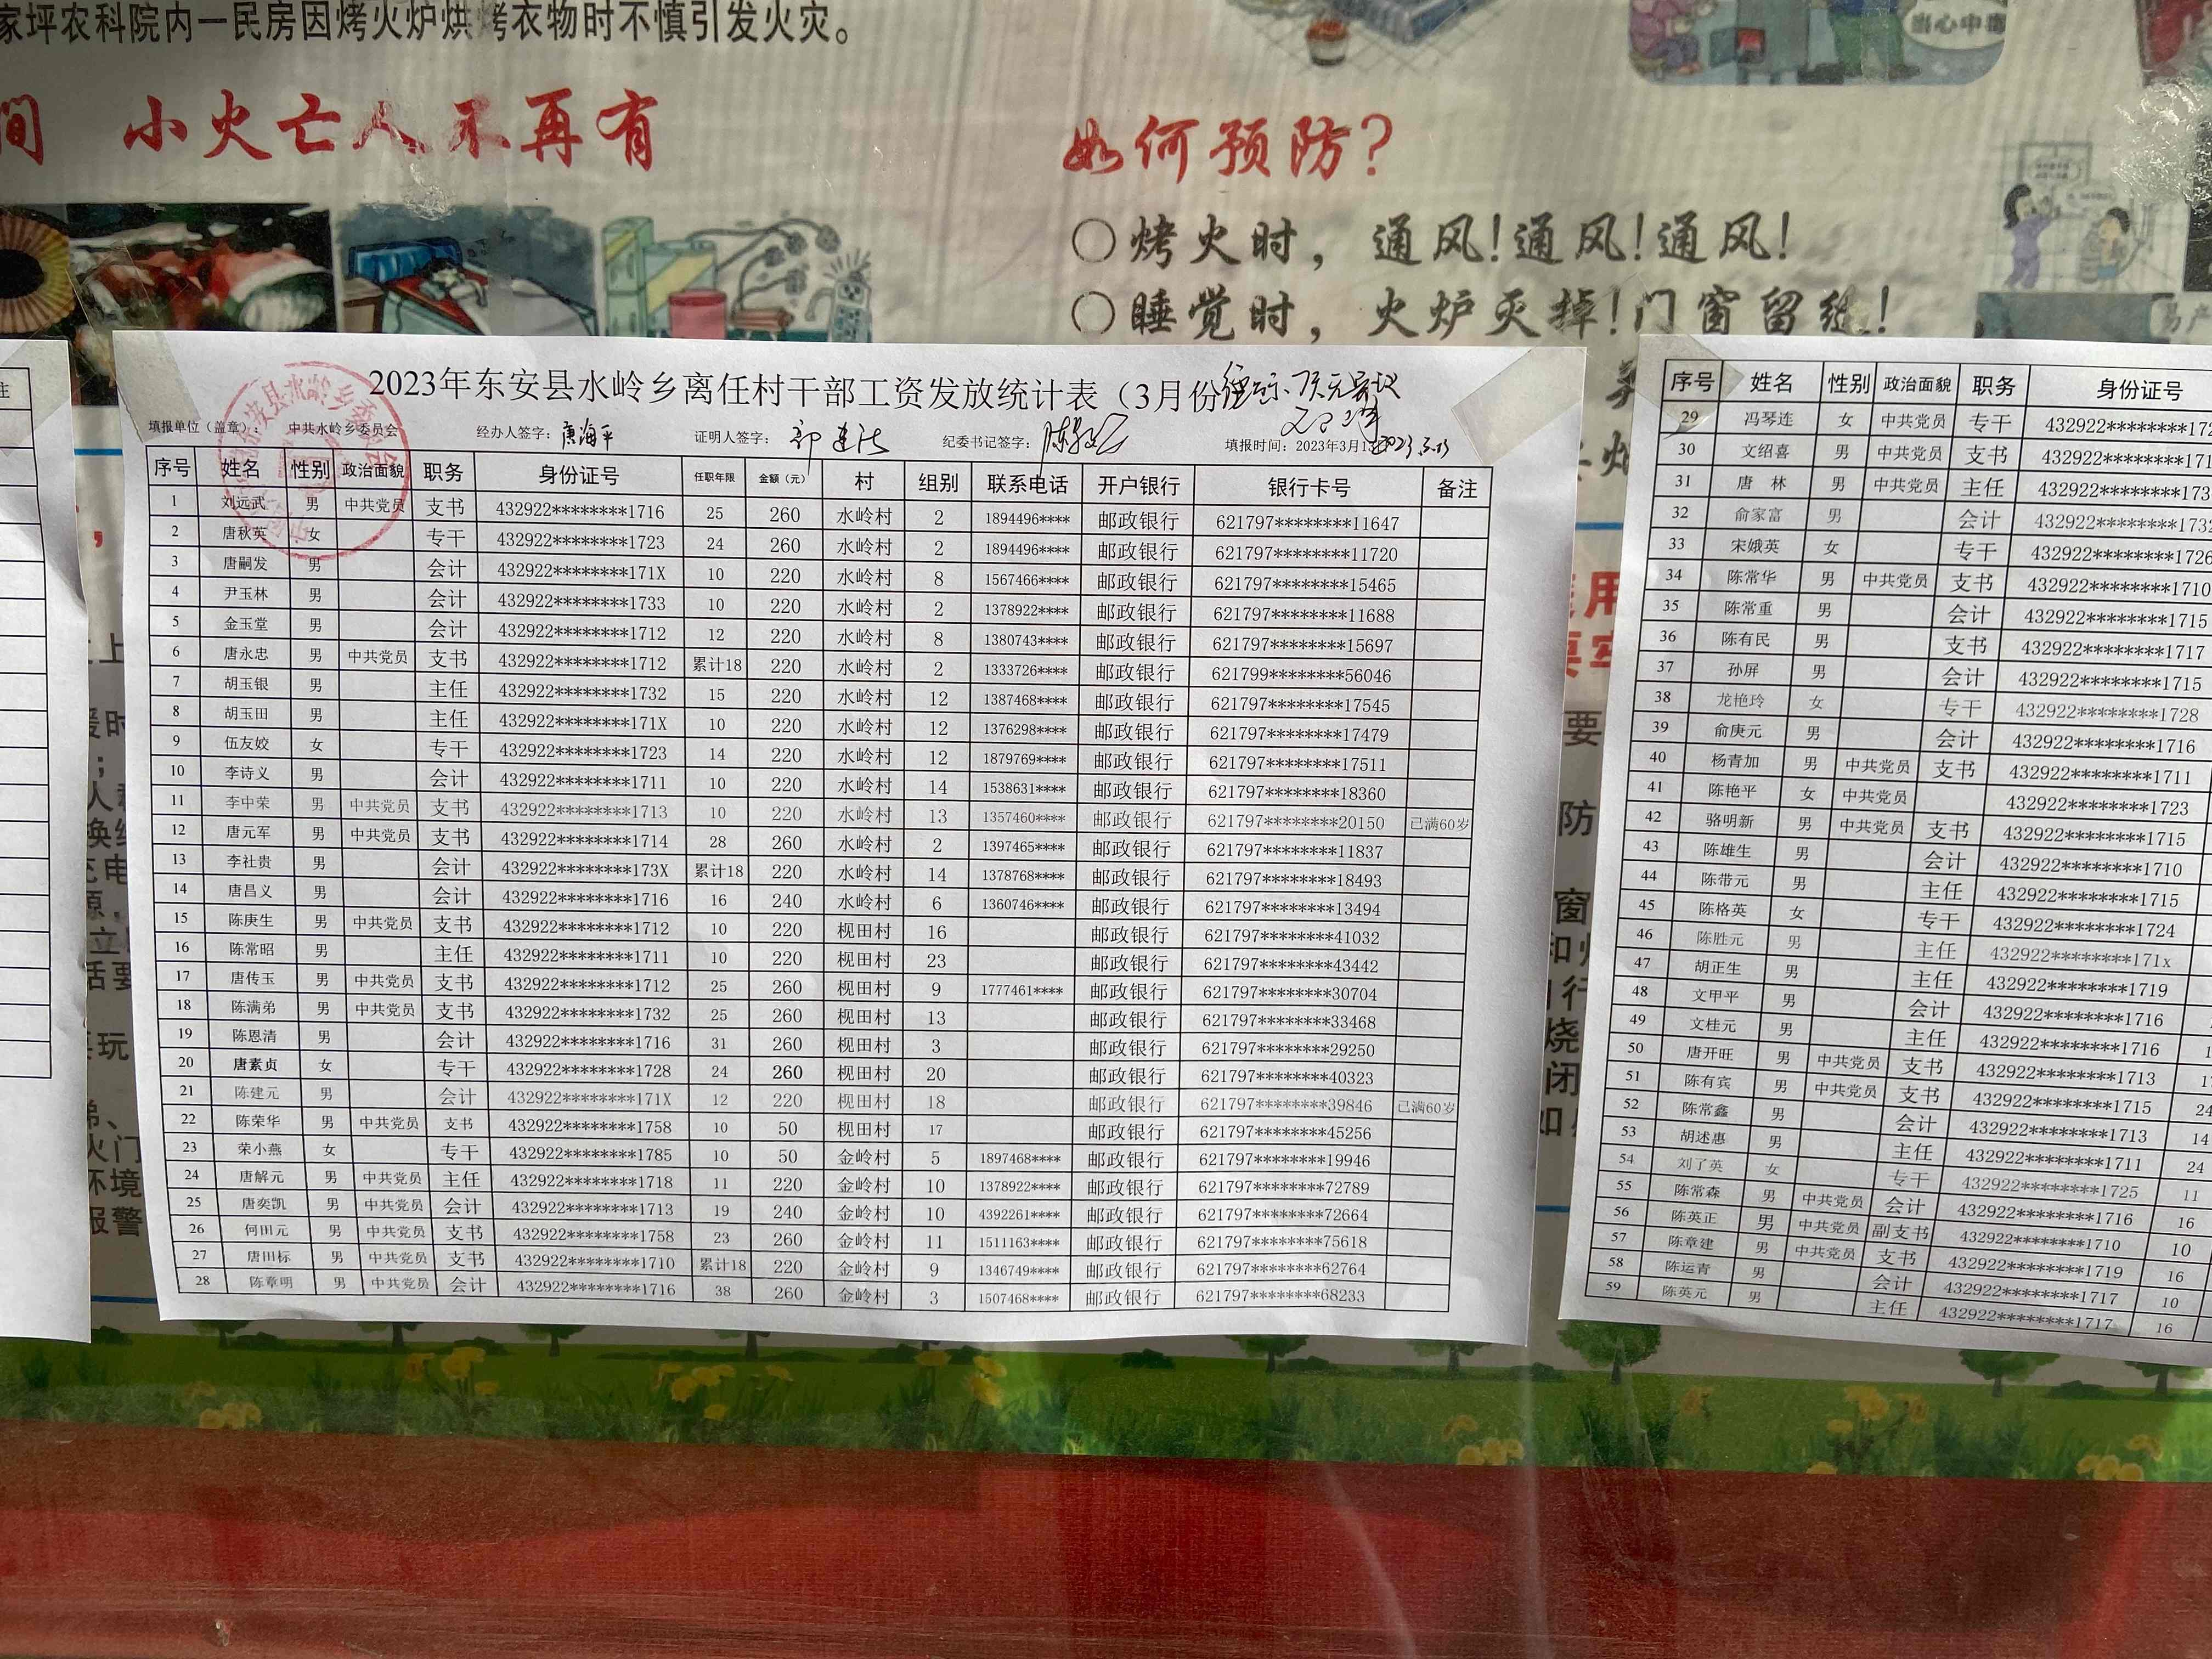 家坪农科院内一民房因烤火炉烘烤衣物时不慎引发火灾。
当心中毒
间 小火亡人不再有
如何预防?
○烤火时,通风!通风!通风!
○睡觉时,火炉灭掉!门窗留缝!
2023年东安县水岭乡离任村干部工资发放统计表(3月份
填报单位(盖章): 中共水岭乡委员会 经办人签字: 唐海平 证明人签字: 纪委书记签字: 填报时间: 2023年3月1
序号 姓名 性别 政治面貌 职务 身份证号 任职年限 金额(元) 村 组别 联系电话 开户银行 银行卡号 备注
1 刘远武 男 中共党员 支书 432922********1716 25 260 水岭村 2 1894496**** 邮政银行 621797********11647
2 唐秋英 女 专干 432922********1723 24 260 水岭村 2 1894496**** 邮政银行 621797********11720
3 唐嗣发 男 会计 432922********171X 10 220 水岭村 8 1567466**** 邮政银行 621797********15465
4 尹玉林 男 会计 432922********1733 10 220 水岭村 2 1378922**** 邮政银行 621797********11688
5 金玉堂 男 会计 432922********1712 12 220 水岭村 8 1380743**** 邮政银行 621797********15697
6 唐永忠 男 中共党员 支书 432922********1712 累计18 220 水岭村 2 1333726**** 邮政银行 621799********56046
7 胡玉银 男 主任 432922********1732 15 220 水岭村 12 1387468**** 邮政银行 621797********17545
8 胡玉田 男 主任 432922********171X 10 220 水岭村 12 1376298**** 邮政银行 621797********17479
9 伍友姣 女 专干 432922********1723 14 220 水岭村 12 1879769**** 邮政银行 621797********17511
10 李诗义 男 会计 432922********1711 10 220 水岭村 14 1538631**** 邮政银行 621797********18360
11 李中荣 男 中共党员 支书 432922********1713 10 220 水岭村 13 1357460**** 邮政银行 621797********20150 已满60岁
12 唐元军 男 中共党员 支书 432922********1714 28 260 水岭村 2 1397465**** 邮政银行 621797********11837
13 李社贵 男 会计 432922********173X 累计18 220 水岭村 14 1378768**** 邮政银行 621797********18493
14 唐昌义 男 会计 432922********1716 16 240 水岭村 6 1360746**** 邮政银行 621797********13494
15 陈庚生 男 中共党员 支书 432922********1712 10 220 枧田村 16 邮政银行 621797********41032
16 陈常昭 男 主任 432922********1711 10 220 枧田村 23 邮政银行 621797********43442
17 唐传玉 男 中共党员 支书 432922********1712 25 260 枧田村 9 1777461**** 邮政银行 621797********30704
18 陈满弟 男 中共党员 支书 432922********1732 25 260 枧田村 13 邮政银行 621797********33468
19 陈恩清 男 会计 432922********1716 31 260 枧田村 3 邮政银行 621797********29250
20 唐素贞 女 专干 432922********1728 24 260 枧田村 20 邮政银行 621797********40323
21 陈建元 男 会计 432922********171X 12 220 枧田村 18 邮政银行 621797********39846 已满60岁
22 陈荣华 男 中共党员 支书 432922********1758 10 50 枧田村 17 邮政银行 621797********45256
23 荣小燕 女 专干 432922********1785 10 50 金岭村 5 1897468**** 邮政银行 621797********19946
24 唐解元 男 中共党员 主任 432922********1718 11 220 金岭村 10 1378922**** 邮政银行 621797********72789
25 唐奕凯 男 中共党员 会计 432922********1713 19 240 金岭村 10 4392261**** 邮政银行 621797********72664
26 何田元 男 中共党员 支书 432922********1758 23 260 金岭村 11 1511163**** 邮政银行 621797********75618
27 唐田标 男 中共党员 支书 432922********1710 累计18 220 金岭村 9 1346749**** 邮政银行 621797********62764
28 陈章明 男 中共党员 会计 432922********1716 38 260 金岭村 3 1507468**** 邮政银行 621797********68233
序号 姓名 性别 政治面貌 职务 身份证号
29 冯琴连 女 中共党员 专干 432922********172
30 文绍喜 男 中共党员 支书 432922********171
31 唐 林 男 中共党员 主任 432922********173
32 俞家富 男 会计 432922********1732
33 宋娥英 女 专干 432922********1726
34 陈常华 男 中共党员 支书 432922********1710
35 陈常重 男 会计 432922********1715
36 陈有民 男 支书 432922********1717
37 孙屏 男 会计 432922********1715
38 龙艳玲 女 专干 432922********1728
39 俞庚元 男 会计 432922********1716
40 杨青加 男 中共党员 支书 432922********1711
41 陈艳平 女 中共党员 432922********1723
42 骆明新 男 中共党员 支书 432922********1715
43 陈雄生 男 会计 432922********1710
44 陈带元 男 主任 432922********1715
45 陈格英 女 专干 432922********1724
46 陈胜元 男 主任 432922********171x
47 胡正生 男 主任 432922********1719
48 文甲平 男 会计 432922********1716
49 文桂元 男 主任 432922********1716
50 唐开旺 男 中共党员 支书 432922********1713
51 陈有宾 男 中共党员 支书 432922********1715 24
52 陈常鑫 男 会计 432922********1713 14
53 胡述惠 男 主任 432922********1711 24
54 刘了英 女 专干 432922********1725 11
55 陈常森 男 中共党员 会计 432922********1716 16
56 陈英正 男 中共党员 副支书 432922********1710 10
57 陈章建 男 中共党员 支书 432922********1719 16
58 陈运青 男 会计 432922********1717 10
59 陈英元 男 主任 432922********1717 16